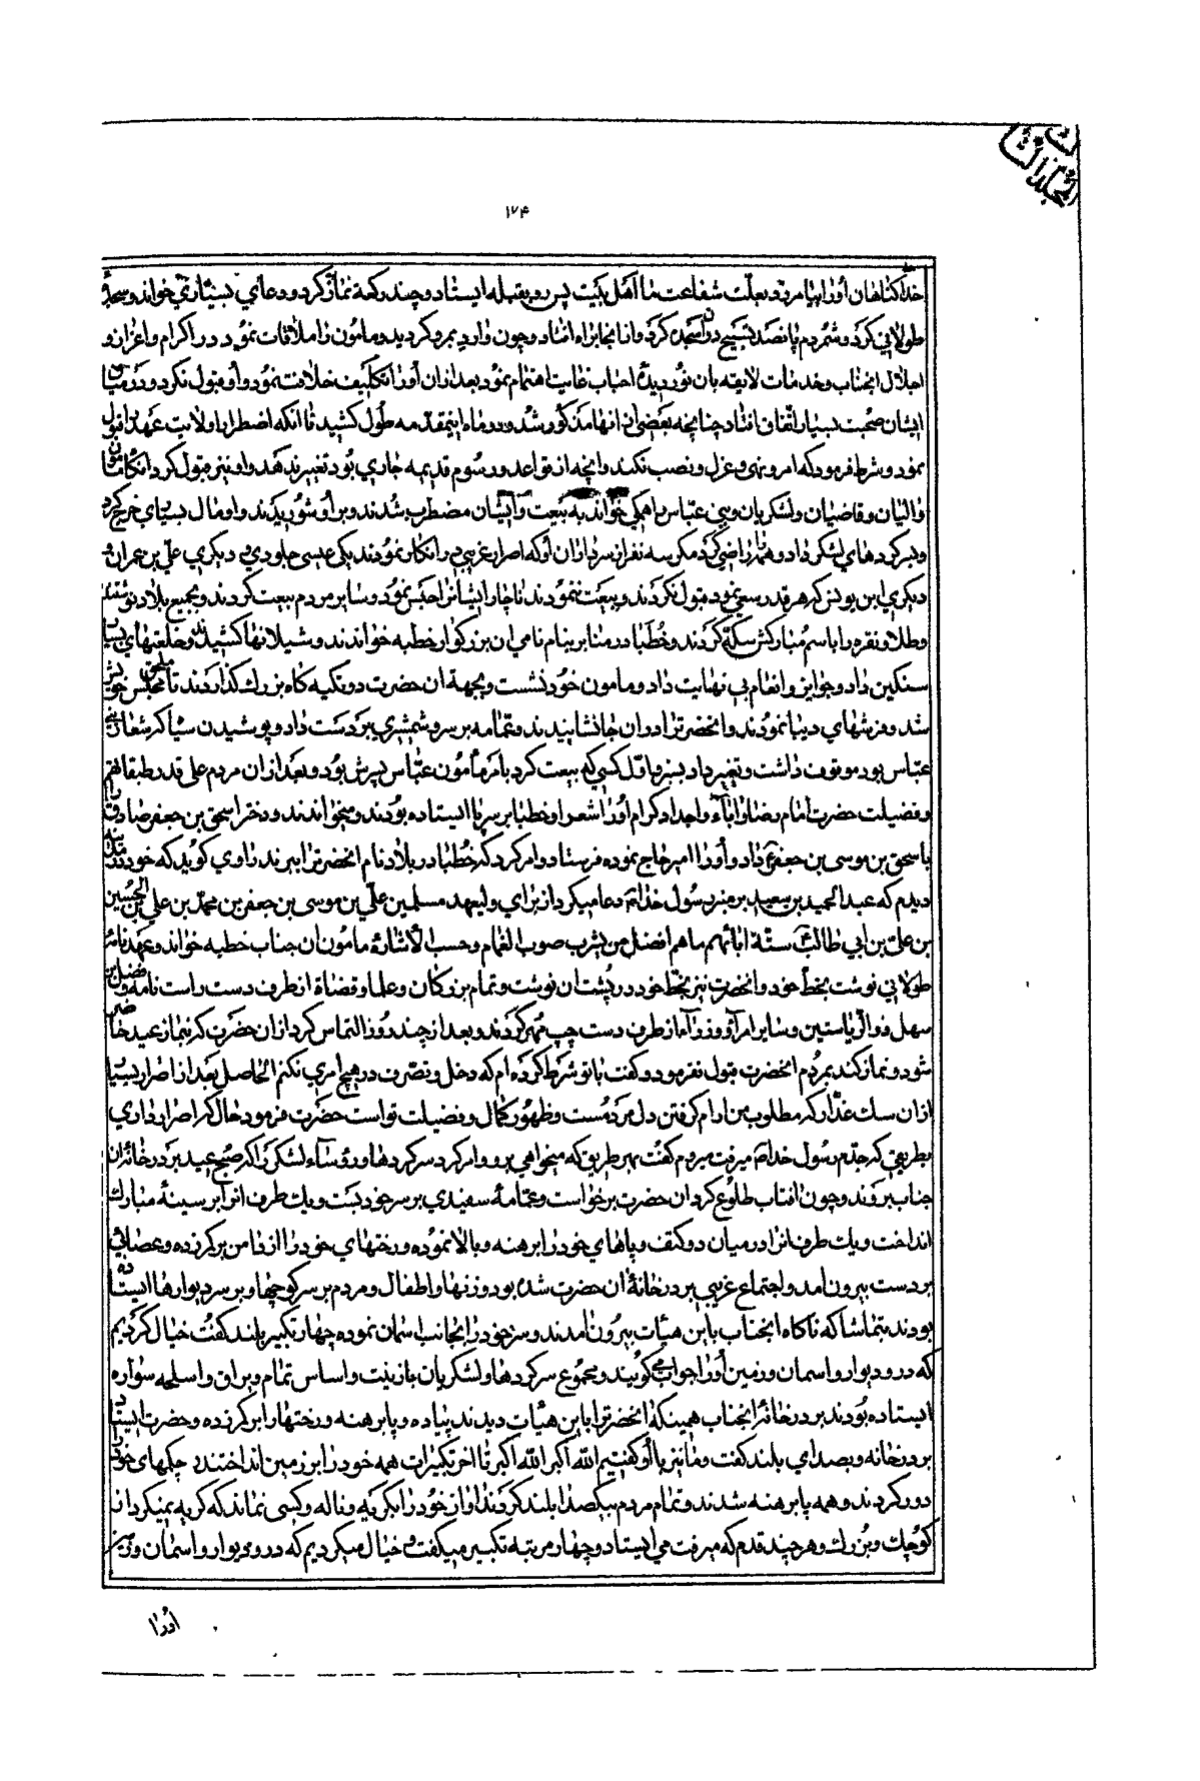 المجلد الثالث
۱۷۴
خدا گناهان او را بیامرزد بعلت شفاعت ما اهل بیت پس رو بقبله ایستاد و چند رکعة نماز کرد و دعای بسیاری خواند و سجدهٔ
طولانی کرد و شمردم پانصد تسبیح در آن سجده کرد و از انجا براه افتاد و چون وارد مرو گردید و مامون را ملاقات نمود در اکرام و اعزاز و
اجلال انجناب و خدمات لایقه بان نور دیدهٔ احباب غایت اهتمام نمود بعد از ان او را تکلیف خلافت نمود و او قبول نکرد و در میان
ایشان صحبت بسیار اتفاق افتاد چنانچه بعضی از انها مذکور شد و دو ماه اینمقدمه طول کشید تا انکه اضطرارا ولایت عهد را قبول
نمود و شرط فرمود که امر و نهی و عزل و نصب نکند و انچه از قواعد و رسوم قدیمه جاری بود تغییر ندهد و او نیز قبول کرد انگاه مامون
والیان و قاضیان و لشکریان و بنی عباس را همگی خواند به بیعت و ایشان مضطرب شدند و بر او شوریدند و او مال بسیاری خرج کرد
و بسر کرده‌های لشکر داد و همه را راضی کرد مگر سه نفر از سرداران او که اصرار غریبی در انکار نمودند یکی عیسی جلودی و دیگری علی بن عمران و
دیگری ابن یونس که هر قدر سعی نمود قبول نکردند و بیعت ننمودند ناچار ایشانرا حبس نمود و سایر مردم بیعت کردند و بجمیع بلاد نوشتند
و طلا و نقره را باسم مبارکش سکه کردند و خطبا در منابر بنام نامی ان بزرگوار خطبه خواندند و شیلانها کشیدند و خلعتهای بسیار
سنگین داد و جوایز و انعام بی نهایت داد و مامون خود نشست و بجهة ان حضرت دو تکیه گاه بزرک گذاردند تا ملحق بمجلس خویش
شد و فرشهای دیبا نمودند و انحضرترا در ان جا نشانیدند و عمامه بر سر و شمشیری بر دست داد و پوشیدن سیاه که شعار بنی
عباس بود موقوف داشت و تغییر داد بسبز و اول کسی که بیعت کرد بامر مأمون عباس پسرش بود و بعد از ان مردم علی قدر طبقاتهم
و فضیلت حضرت امام رضا و اباء و اجداد کرام او را شعرا و خطبا بر سر پا ایستاده بودند و میخواندند و دختر اسحق بن جعفر صادق را
باسحق بن موسی بن جعفر ع داد و او را امیر حاج نموده فرستاد و امر کرد که خطبا در بلاد نام انحضرترا ببرند راوی گوید که خود در مدینه
دیدم که عبد الحمید بن سعید بر منبر رسول خدا ص دعا میکرد از برای ولیعهد مسلمین علی بن موسی بن جعفر بن محمد بن علی بن الحسین
بن علی بن ابی طالب ع ستة اباءهم ماهم افضل من یشرب صوب الغمام و حسب الاشارهٔ مامون ان جناب خطبه خواند و عهد نامهٔ
طولانی نوشت بخط خود و انحضرت نیز بخط خود در پشت ان نوشت و تمام بزرگان و علما و قضاة از طرف دست راست نامه و فضل بن
سهل ذو الریاستین و سایر امرا و وزرا از طرف دست چپ مهر کردند و بعد از چند روز التماس کرد از ان حضرت که بنماز عید حاضر
شود و نماز کند بمردم انحضرت قبول نفرمود و گفت با تو شرط کرده‌ام که دخل و تصرف در هیچ امری نکنم الحاصل بعد از اصرار بسیار
از ان سک غدار که مطلوب من ارام گرفتن دل مردمست و ظهور کمال و فضیلت تو است حضرت فرمود حال که اصرار داری
بطریقی که جدم رسول خدا ص میرفت میروم گفت بهر طریق که میخواهی برو و امر کرد سرکردها و رؤساء لشکر را که صبح عید بر در خانهٔ ان
جناب بروند و چون افتاب طلوع کرد ان حضرت برخواست و عمامهٔ سفیدی بر سر خود بست و یک طرف انرا بر سینهٔ مبارک
انداخت و یک طرف انرا در میان دو کتف و پاهای خود را برهنه و بالا نموده و رختهای خود را از دامن بر گرده و عصائی
بر دست بیرون امد و اجتماع غریبی بر در خانهٔ ان حضرت شده بود و زنها و اطفال و مردم بر سر کوچها و بر سر دیوارها ایستاده
بودند بتماشا که ناگاه انجناب باین هیأت بیرون امدند و سر خود را بجانب اسمان نموده چهار تکبیر بلند گفت خیال کردیم
که در و دیوار و اسمان و زمین او را جواب میگویند و مجموع سرکردها و لشکریان با زینت و اساس تمام و یران و اسلحه سواره
ایستاده بودند بر در خانهٔ انجناب همینکه انحضرترا باین هیأت دیدند پیاده و پا برهنه و رختها را بر گرده و حضرت ایستاد
بر در خانه و بصدای بلند گفت و ما نیز با او گفتیم الله اکبر الله اکبر تا اخر تکبیرات همه خود را بر زمین انداختند و چکمهای خود را
دور کردند و همه پا برهنه شدند و تمام مردم بیکصدا بلند کردند اواز خود را بگریه و ناله و کسی نماند که گریه نمیکرد از
کوچک و بزرک و هر چند قدم که میرفت می ایستاد و چهار مرتبه تکبیر میگفت و خیال میکردیم که در و دیوار و اسمان و زمین
او را